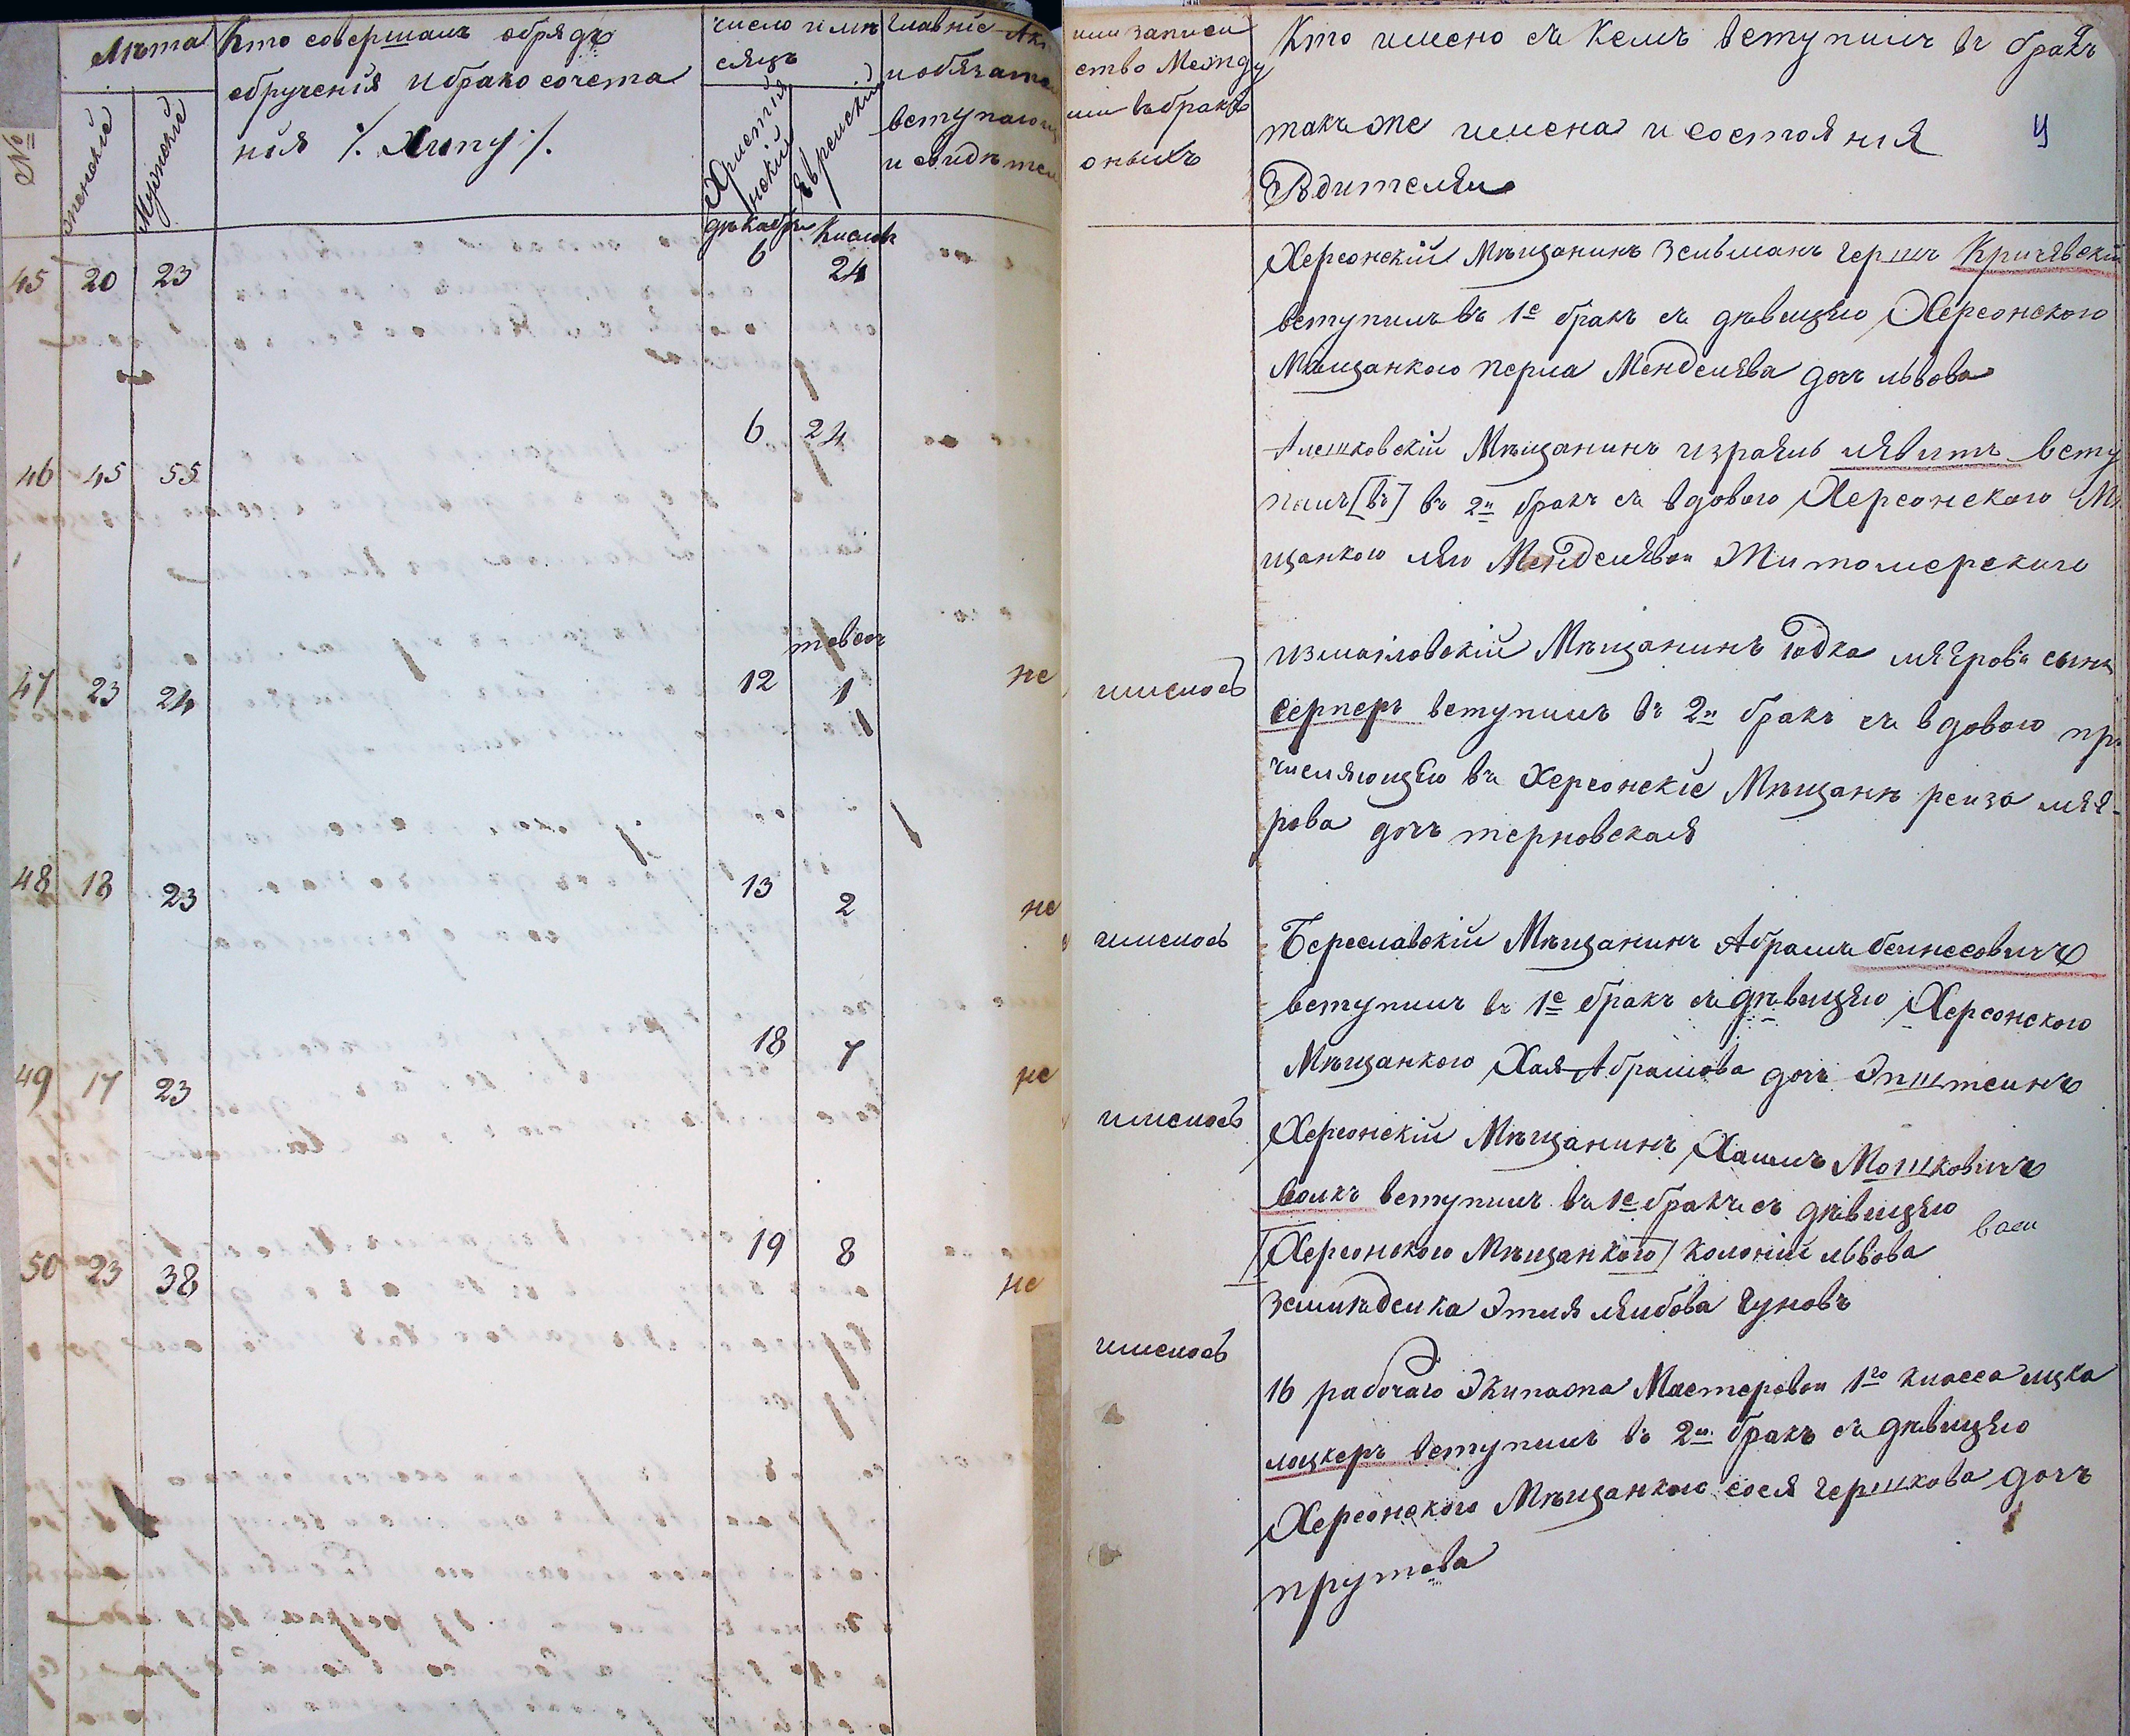 №
Лѣта
женскіе
Мужскіе
Кто совершалъ обрядъ
обрученія и бракосочета
нія /. Хипу ./
число и мѣ
сяцъ
Христіянскій
Еврейскій
главніе Ак
и обязате
вступающ
и свидѣтел
или записи
ство Между
ими въ бракъ
оныхъ
Кто имено съ Кемъ вступилъ въ бракъ
такъ же имена и состоянія
Родителей
9
декабр Кислев
45 20 23 6 24
Херсонскій Мѣщанинъ Зельманъ Герш Кричевскій
вступилъ въ 1е бракъ съ дѣвицею Херсонского
Мѣщанкою Перла Менделева доч Львова
46 45 55 6 24
Алешковскій Мѣщанинъ Израель Левитъ всту
пилъ [въ] въ 2й бракъ съ вдовою Херсонского Мѣ
щанкою Лею Менделевои Житомерскаго
тевес
47 23 24 12 1 не имелось
Измаіловскій Мѣщанинъ Іодка Меяровъ сынъ
Серперъ вступилъ въ 2й бракъ съ вдовою при
числяющею въ Херсонскіе Мѣщанѣ Реиза Мее-
рова доч Терновская
48 18 23 13 2 не имелось
Береславскій Мѣщанинъ Абрамъ Беинесовичъ
вступилъ въ 1е бракъ съ дѣвицею Херсонского
Мѣщанкою Хая Абрамова доч Эпштеинъ
49 17 23 18 7 не имелось
Херсонскій Мѣщанинъ Хаимъ Мошковичъ
Волкъ вступилъ въ 1е бракъ съ дѣвицею
[Херсонского Мѣщанкою] Колоніи Львова
Земледелка Этля Леибова Гуновъ
50 23 38 19 8 не имелось
16 рабочаго Экипажа Мастеровои 1го класса Ицка
Лацкеръ вступилъ въ 2й бракъ съ дѣвицею
Херсонского Мѣщанкою Сося Гершкова доч
Прутова